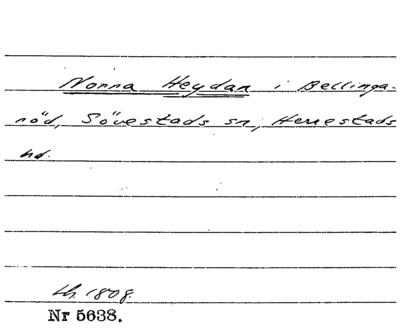 Norra Heydan i Bellinga-
röd, Sövestads sn, Herrestads
hd.
Lh. 1808.
Nr 5638.